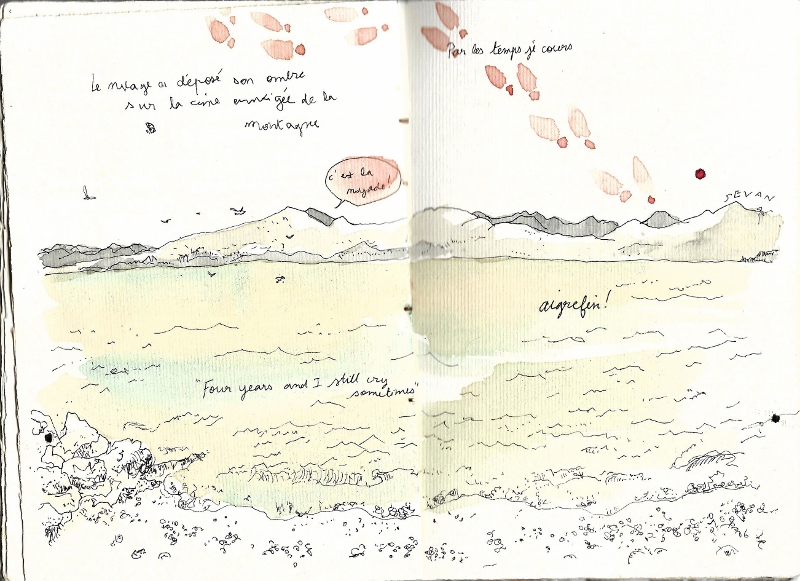 Le nuage a déposé son ombre
sur la cime enneigée de la
montagne
Par les temps je cours
c'est la
noyade!
SEVAN
aigrefin!
"Four years and I still cry
sometimes"